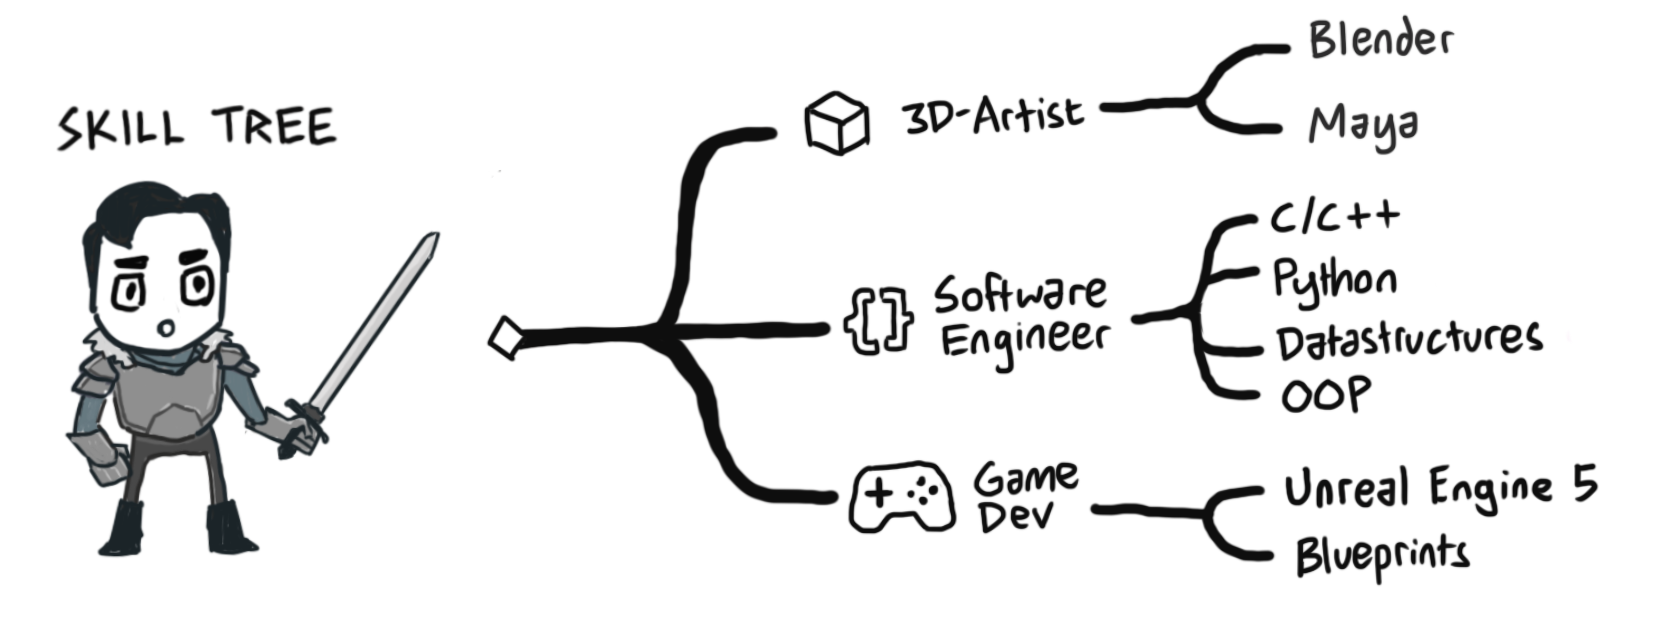 SKILL TREE
3D-Artist
Blender
Maya
Software
Engineer
C/C++
Python
Datastructures
OOP
Game
Dev
Unreal Engine 5
Blueprints